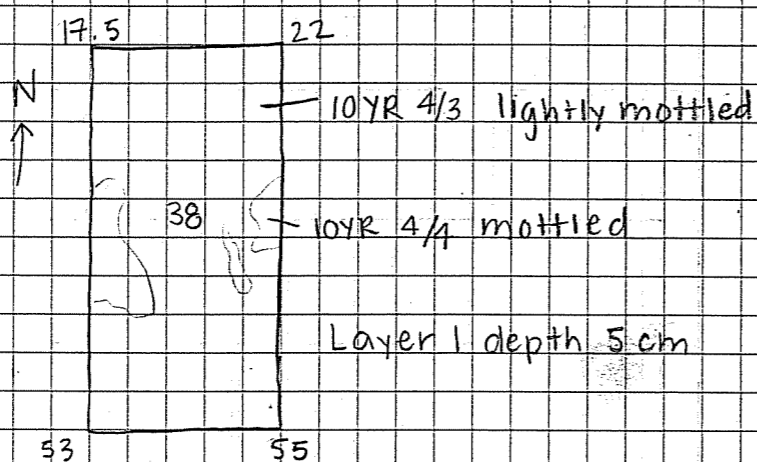 17.5 22
N
10YR 4/3 lightly mottled
38
10YR 4/4 mottled
Layer 1 depth 5 cm
53 55